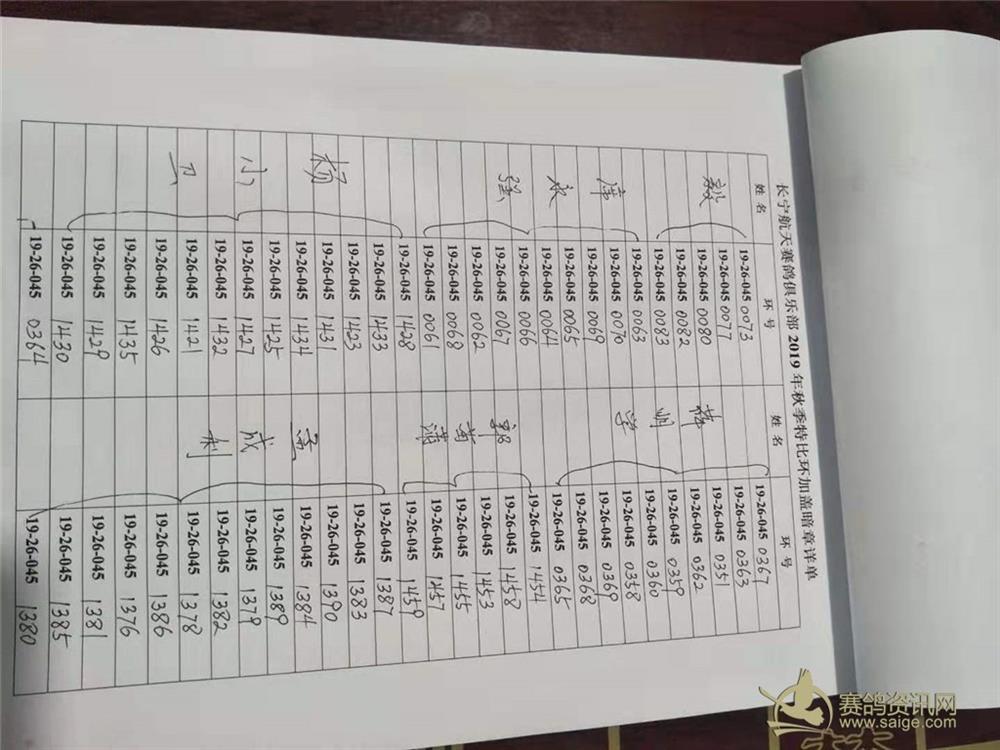 长宁航天赛鸽俱乐部 2019 年秋季特比环加盖暗章详单
姓名 环号 姓名 环号
19-26-045 0073 19-26-045 0367
19-26-045 0077 19-26-045 0363
毅 19-26-045 0080 19-26-045 0351
19-26-045 0082 19-26-045 0362
19-26-045 0083 明 19-26-045 0359
19-26-045 0063 19-26-045 0360
19-26-045 0070 学 19-26-045 0358
19-26-045 0069 19-26-045 0369
19-26-045 0065 19-26-045 0368
永 19-26-045 0064 19-26-045 0365
19-26-045 0066 19-26-045 1454
强 19-26-045 0067 19-26-045 1458
19-26-045 0062 郭 19-26-045 1453
19-26-045 0068 苗 19-26-045 1455
19-26-045 0061 19-26-045 1457
19-26-045 1428 19-26-045 1459
19-26-045 1433 19-26-045 1387
19-26-045 1423 19-26-045 1383
杨 19-26-045 1431 19-26-045 1390
19-26-045 1434 孟 19-26-045 1384
19-26-045 1425 19-26-045 1389
小 19-26-045 1427 成 19-26-045 1379
19-26-045 1432 利 19-26-045 1382
卫 19-26-045 1421 19-26-045 1378
19-26-045 1426 19-26-045 1386
19-26-045 1435 19-26-045 1376
19-26-045 1429 19-26-045 1381
19-26-045 1430 19-26-045 1385
19-26-045 0364 19-26-045 1380
赛鸽资讯网
www.saige.com